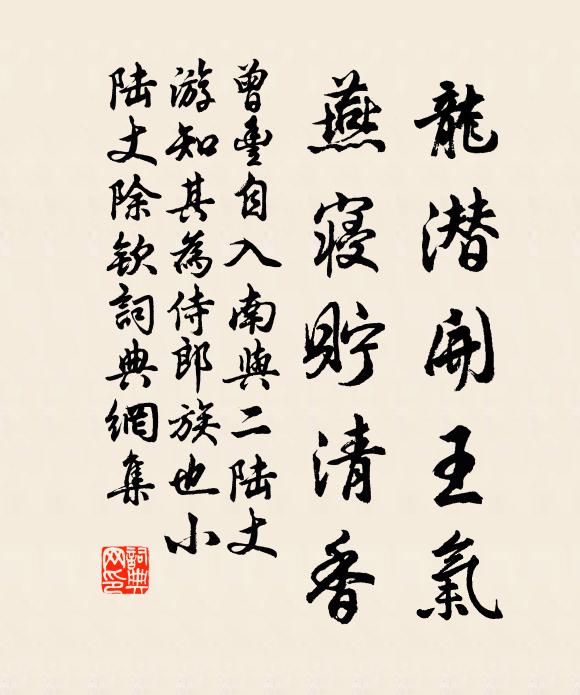 龍潛開王氣
燕寢貯清香
曾豐自入南與二陸丈
游知其為侍郎族也小
陸丈除欽詞典網集
詞典
网印